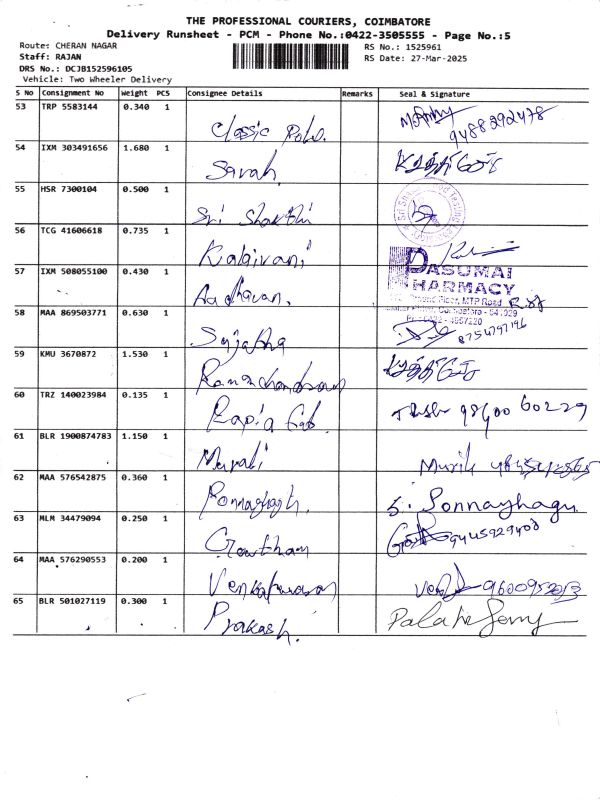 THE PROFESSIONAL COURIERS, COIMBATORE
Delivery Runsheet - PCM - Phone No.:0422-3505555 - Page No.:5
Route: CHERAN NAGAR
Staff: RAJAN
DRS No.: DCJB152596105
Vehicle: Two Wheeler Delivery
RS No.: 1525961
RS Date: 27-Mar-2025
S No Consignment No Weight PCS Consignee Details Remarks Seal & Signature
53 TRP 5583144 0.340 1
Classic 9488292478
54 IXM 303491656 1.680 1
Sarah
55 HSR 7300104 0.500 1
Sri Shakthi
56 TCG 41606618 0.735 1
Kalaivani
57 IXM 508055100 0.430 1
Aadhavan.
PASUMAI
PHARMACY
58 MAA 869503771 0.630 1
Sujatha 8754797196
59 KMU 3670872 1.530 1
Ramachandran
60 TRZ 140023984 0.135 1
98400 60229
61 BLR 1900874783 1.150 1
Murali
62 MAA 576542875 0.360 1
Ponnazhagu. S. Ponnazhagu
63 MLM 34479094 0.250 1
Gowtham 9445929408
64 MAA 576290553 0.200 1
Venkateswaran
65 BLR 501027119 0.300 1
Prakash.